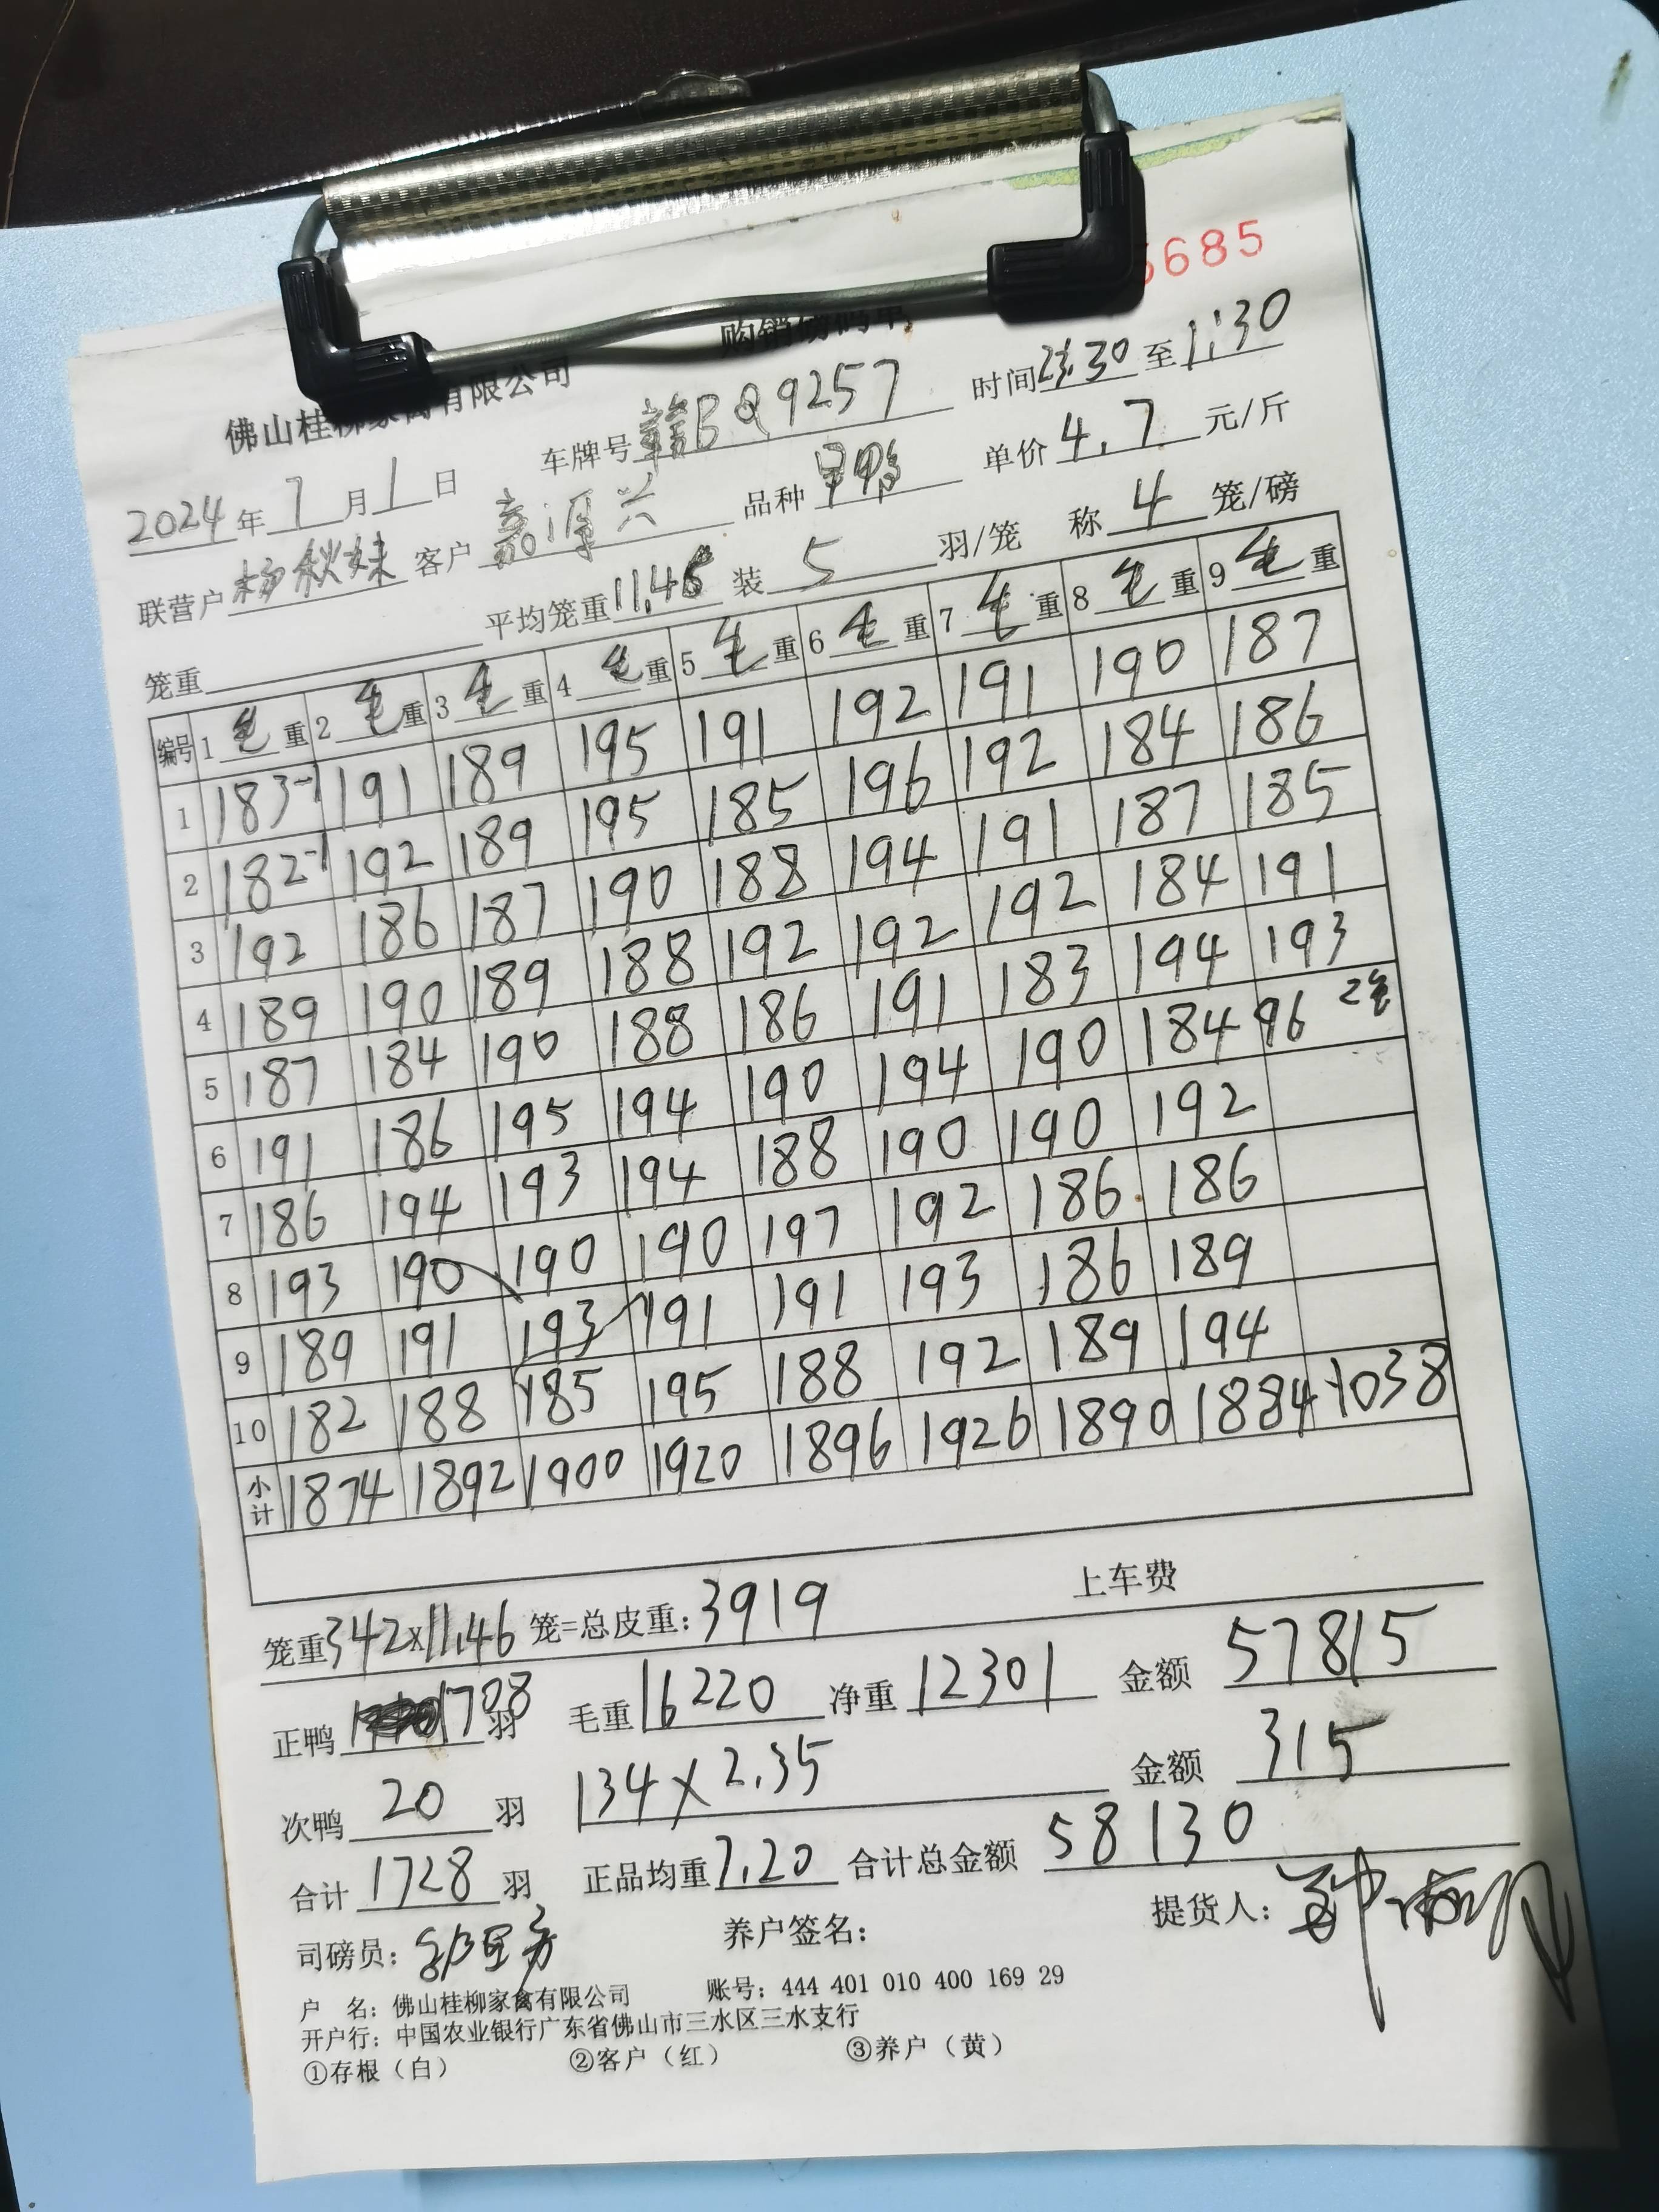 5685
购销磅码单
佛山桂柳家禽有限公司
2024年7月1日 车牌号赣BQ9257 时间23:30至1:30
联营户杨秋妹 客户嘉源兴 品种旱鸭 单价4.7元/斤
笼重 平均笼重11.46 装5羽/笼 称4笼/磅
编号 1毛重 2毛重 3毛重 4毛重 5毛重 6毛重 7毛重 8毛重 9毛重
1 183-1 191 189 195 191 192 191 190 187
2 182-1 192 189 195 185 196 192 184 186
3 192 186 187 190 188 194 191 187 185
4 189 190 189 188 192 192 192 184 191
5 187 184 190 188 186 191 183 194 193
6 191 186 195 194 190 194 190 184 96 2笼
7 186 194 193 194 188 190 190 192
8 193 190 190 190 197 192 186 186
9 189 191 193 191 191 193 186 189
10 182 188 185 195 188 192 189 194
小计 1874 1892 1900 1920 1896 1926 1890 1884 1038
笼重342x11.46笼=总皮重:3919 上车费
正鸭1708羽 毛重16220 净重12301 金额57815
次鸭20羽 134x2.35 金额315
合计1728羽 正品均重7.20 合计总金额58130
司磅员: 养户签名: 提货人:
户 名:佛山桂柳家禽有限公司 账号:444 401 010 400 169 29
开户行:中国农业银行广东省佛山市三水区三水支行
①存根（白） ②客户（红） ③养户（黄）